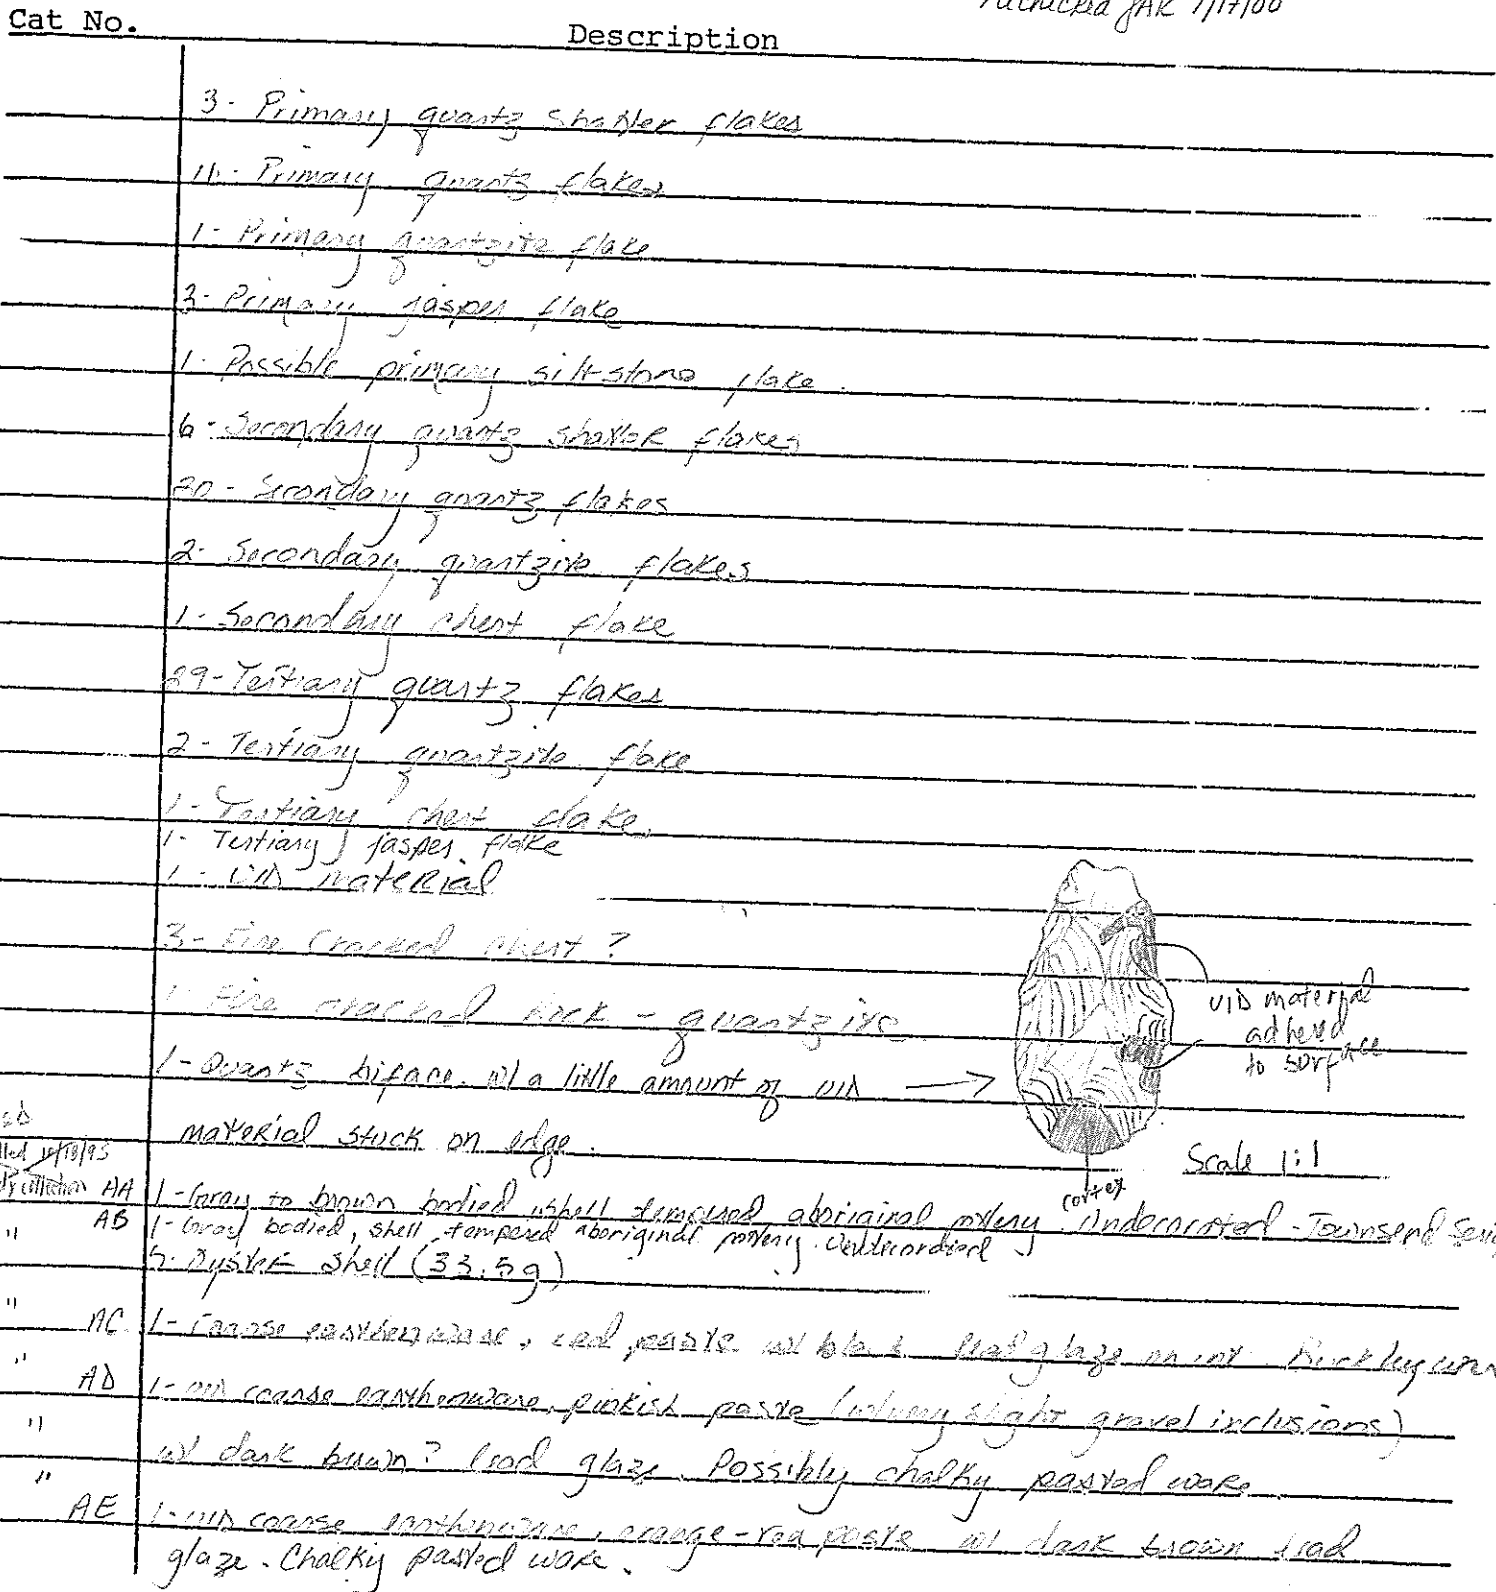 JAR 7/17/00
Cat No.
Description
3- Primary quartz shatter flakes
11- Primary quartz flakes
1- Primary quartzite flake
3- Primary jasper flake
1- Possible primary silt-stone flake.
6- Secondary quartz shatter flakes
20- Secondary quartz flakes
2- Secondary quartzite flakes
1- Secondary chert flake
29- Tertiary quartz flakes
2- Tertiary quartzite flake
1- Tertiary chert flake.
1- Tertiary jasper flake
1- UID material
3- Fire Cracked chert?
1- Fire cracked rock - quartzite
UID material
adhered
to surface
1- Quartz biface. w/ a little amount of UID →
material stuck on edge.
Scale 1:1
cortex
AA 1- Gray to brown bodied shell tempered aboriginal pottery. Undecorated - Townsend
" AB 1- Gray bodied, shell tempered aboriginal pottery. Undecordied
5- Oyster shell (33.5g)
" AC 1- Coarse earthenware, red paste w/ black lead glaze on int. Buckley
" AD 1- UID coarse earthenware, pinkish paste (w/ very slight gravel inclusions)
" w/ dark brown? lead glaze. Possibly chalky pasted ware.
" AE 1- UID coarse earthenware, orange-red paste w/ dark brown lead
glaze. Chalky pasted ware.